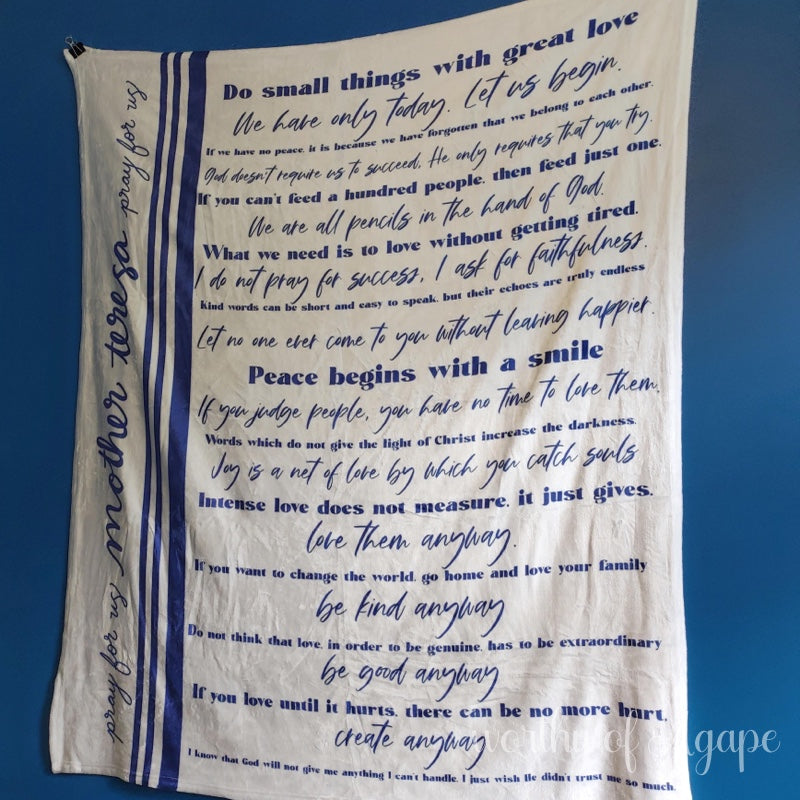 Do small things with great love
We have only today. Let us begin.
If we have no peace, it is because we have forgotten that we belong to each other.
God doesn't require us to succeed, He only requires that you try.
If you can't feed a hundred people, then feed just one.
We are all pencils in the hand of God.
What we need is to love without getting tired.
I do not pray for success, I ask for faithfulness.
Kind words can be short and easy to speak, but their echoes are truly endless
Let no one ever come to you without leaving happier.
Peace begins with a smile
If you judge people, you have no time to love them.
Words which do not give the light of Christ increase the darkness.
Joy is a net of love by which you catch souls
Intense love does not measure, it just gives.
love them anyway.
If you want to change the world, go home and love your family
be kind anyway
Do not think that love, in order to be genuine, has to be extraordinary
be good anyway
If you love until it hurts, there can be no more hurt,
create anyway
I know that God will not give me anything I can't handle. I just wish He didn't trust me so much.
pray for us mother teresa pray for us
worthy of Agape